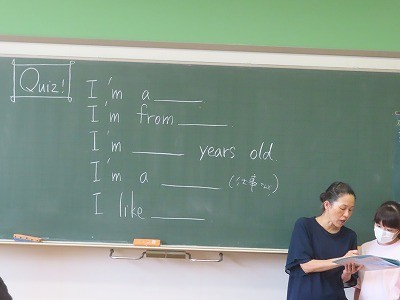 Quiz!
I'm a ____
I'm from ____
I'm ____ years old.
I'm a ____ (仕事など)
I like ____